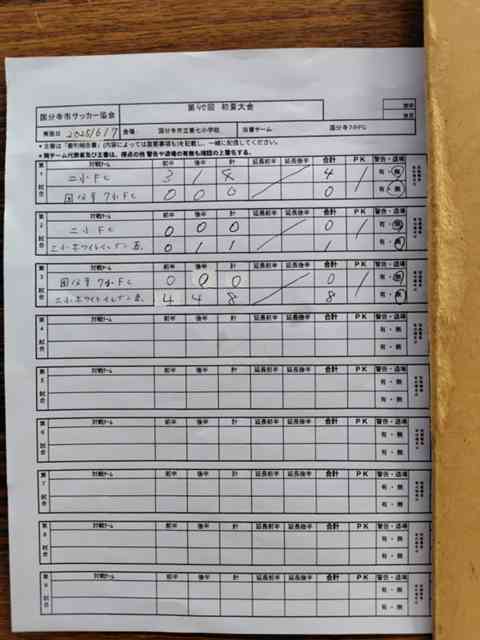 国分寺市サッカー協会 第40回 初夏大会
実施日 2025/6/7 会場: 国分寺市立第七小学校 当番チーム 国分寺7小FC
＊主審は「審判報告書」(内容によっては重要事項も)を記載し、一緒に配信してください。
＊両チーム代表者及び主審は、得点の他 警告や退場の有無も確認の上署名する。
第1試合 対戦チーム 前半 後半 計 延長前半 延長後半 合計 PK 警告・退場
二小FC 3 1 4 4 有・無
国分寺7小FC 0 0 0 0 有・無
第2試合 対戦チーム 前半 後半 計 延長前半 延長後半 合計 PK 警告・退場
二小FC 0 0 0 0 有・無
二小ホワイトイレブン 0 1 1 1 有・無
第3試合 対戦チーム 前半 後半 計 延長前半 延長後半 合計 PK 警告・退場
国分寺7小FC 0 0 0 0 有・無
二小ホワイトイレブン 4 4 8 8 有・無
第4試合 対戦チーム 前半 後半 計 延長前半 延長後半 合計 PK 警告・退場
有・無
有・無
第5試合 対戦チーム 前半 後半 計 延長前半 延長後半 合計 PK 警告・退場
有・無
有・無
第6試合 対戦チーム 前半 後半 計 延長前半 延長後半 合計 PK 警告・退場
有・無
有・無
第7試合 対戦チーム 前半 後半 計 延長前半 延長後半 合計 PK 警告・退場
有・無
有・無
第8試合 対戦チーム 前半 後半 計 延長前半 延長後半 合計 PK 警告・退場
有・無
有・無
第9試合 対戦チーム 前半 後半 計 延長前半 延長後半 合計 PK 警告・退場
有・無
有・無